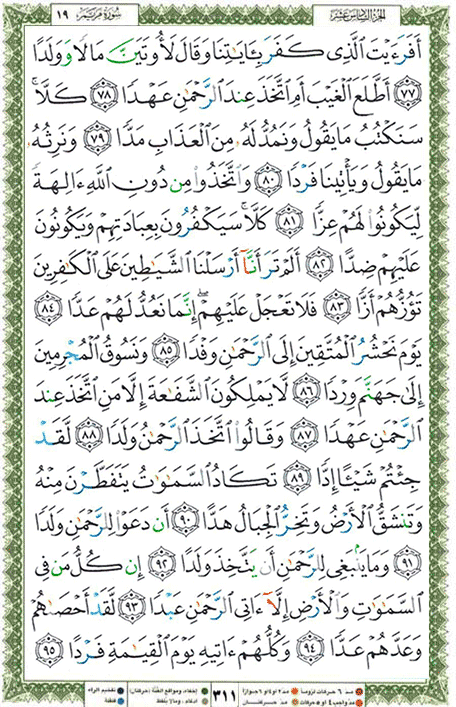 الجزء السادس عشر
سورة مريم ١٩
أَفَرَءَيْتَ ٱلَّذِى كَفَرَ بِـَٔايَـٰتِنَا وَقَالَ لَأُوتَيَنَّ مَالًا وَوَلَدًا
٧٧ أَطَّلَعَ ٱلْغَيْبَ أَمِ ٱتَّخَذَ عِندَ ٱلرَّحْمَـٰنِ عَهْدًا ٧٨ كَلَّا ۚ
سَنَكْتُبُ مَا يَقُولُ وَنَمُدُّ لَهُۥ مِنَ ٱلْعَذَابِ مَدًّا ٧٩ وَنَرِثُهُۥ
مَا يَقُولُ وَيَأْتِينَا فَرْدًا ٨٠ وَٱتَّخَذُوا۟ مِن دُونِ ٱللَّهِ ءَالِهَةً
لِّيَكُونُوا۟ لَهُمْ عِزًّا ٨١ كَلَّا ۚ سَيَكْفُرُونَ بِعِبَادَتِهِمْ وَيَكُونُونَ
عَلَيْهِمْ ضِدًّا ٨٢ أَلَمْ تَرَ أَنَّآ أَرْسَلْنَا ٱلشَّيَـٰطِينَ عَلَى ٱلْكَـٰفِرِينَ
تَؤُزُّهُمْ أَزًّا ٨٣ فَلَا تَعْجَلْ عَلَيْهِمْ ۖ إِنَّمَا نَعُدُّ لَهُمْ عَدًّا ٨٤
يَوْمَ نَحْشُرُ ٱلْمُتَّقِينَ إِلَى ٱلرَّحْمَـٰنِ وَفْدًا ٨٥ وَنَسُوقُ ٱلْمُجْرِمِينَ
إِلَىٰ جَهَنَّمَ وِرْدًا ٨٦ لَّا يَمْلِكُونَ ٱلشَّفَـٰعَةَ إِلَّا مَنِ ٱتَّخَذَ عِندَ
ٱلرَّحْمَـٰنِ عَهْدًا ٨٧ وَقَالُوا۟ ٱتَّخَذَ ٱلرَّحْمَـٰنُ وَلَدًا ٨٨ لَّقَدْ
جِئْتُمْ شَيْـًٔا إِدًّا ٨٩ تَكَادُ ٱلسَّمَـٰوَٰتُ يَتَفَطَّرْنَ مِنْهُ
وَتَنشَقُّ ٱلْأَرْضُ وَتَخِرُّ ٱلْجِبَالُ هَدًّا ٩٠ أَن دَعَوْا۟ لِلرَّحْمَـٰنِ وَلَدًا
٩١ وَمَا يَنۢبَغِى لِلرَّحْمَـٰنِ أَن يَتَّخِذَ وَلَدًا ٩٢ إِن كُلُّ مَن فِى
ٱلسَّمَـٰوَٰتِ وَٱلْأَرْضِ إِلَّآ ءَاتِى ٱلرَّحْمَـٰنِ عَبْدًا ٩٣ لَّقَدْ أَحْصَىٰهُمْ
وَعَدَّهُمْ عَدًّا ٩٤ وَكُلُّهُمْ ءَاتِيهِ يَوْمَ ٱلْقِيَـٰمَةِ فَرْدًا ٩٥
مدّ ٦ حركات لزوماً مدّ ٢ أو ٤ أو ٦ جوازاً
مدّ واجب ٤ أو ٥ حركات مدّ حركتان
٣١١
إخفاء، ومواقع الغنّة (حركتان) تفخيم الراء
ادغام، ومالا يلفظ قلقلة